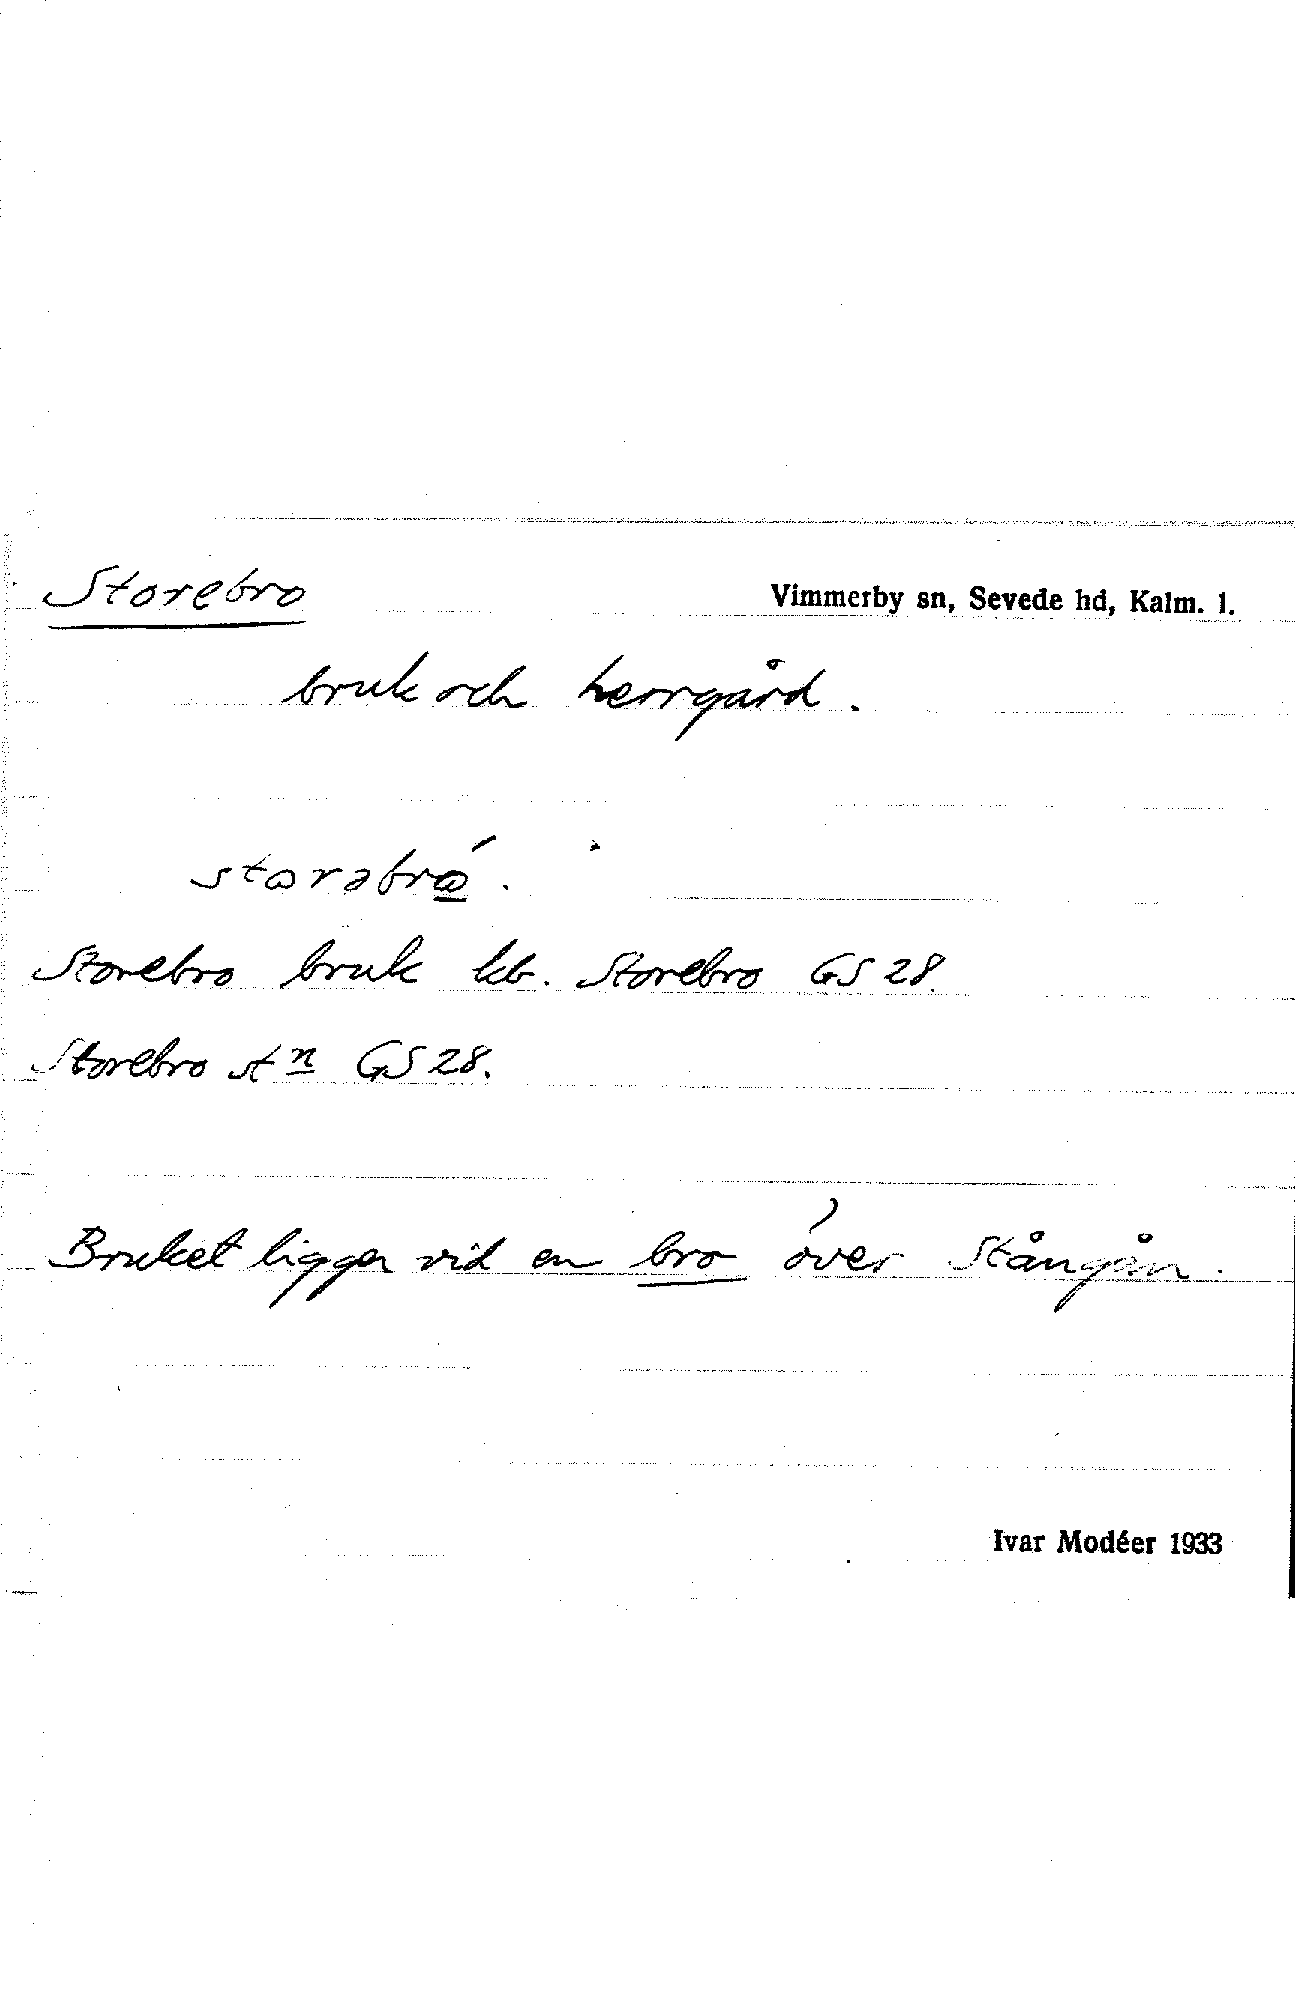 Storebro Vimmerby sn, Sevede hd, Kalm. l.
bruk och herrgård.
storəbró.
Storebro bruk kb. Storebro GS 28.
Storebro stn GS 28.
Bruket ligger vid en bro över Stångån.
Ivar Modéer 1933